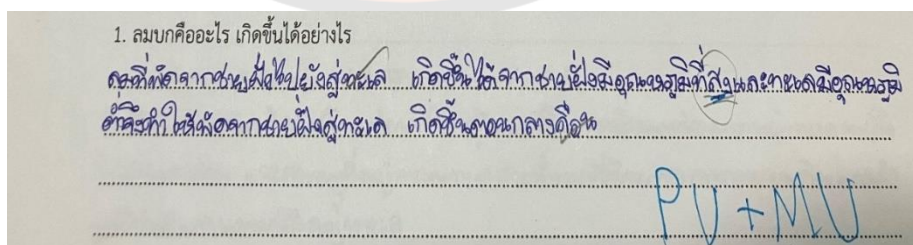 1. ลมบกคืออะไร เกิดขึ้นได้อย่างไร
ลมที่พัดจากชายฝั่งไปยังสู่ทะเล เกิดขึ้นได้จากชายฝั่งมีอุณหภูมิที่สูงและทะเลมีอุณหภูมิ
ต่ำจึงทำให้พัดจากชายฝั่งสู่ทะเล เกิดขึ้นตอนกลางคืน
PU + MU